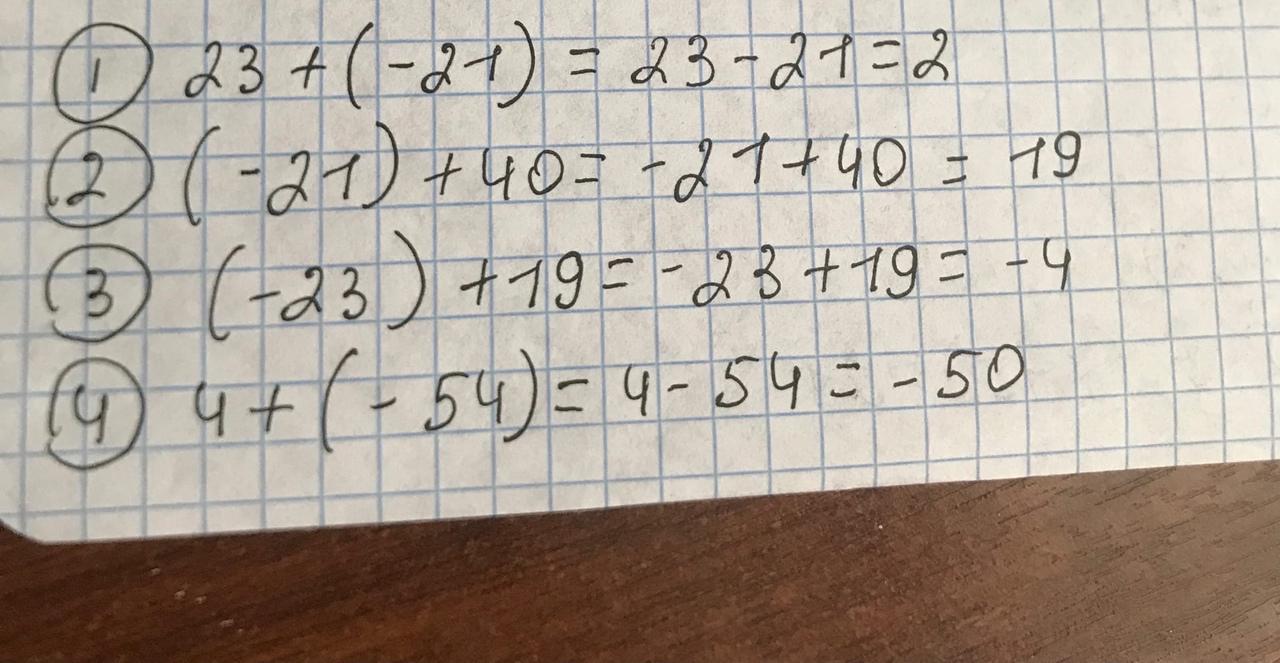 ① 23 + (-21) = 23 - 21 = 2
② (-21) + 40 = -21 + 40 = 19
③ (-23) + 19 = -23 + 19 = -4
④ 4 + (-54) = 4 - 54 = -50